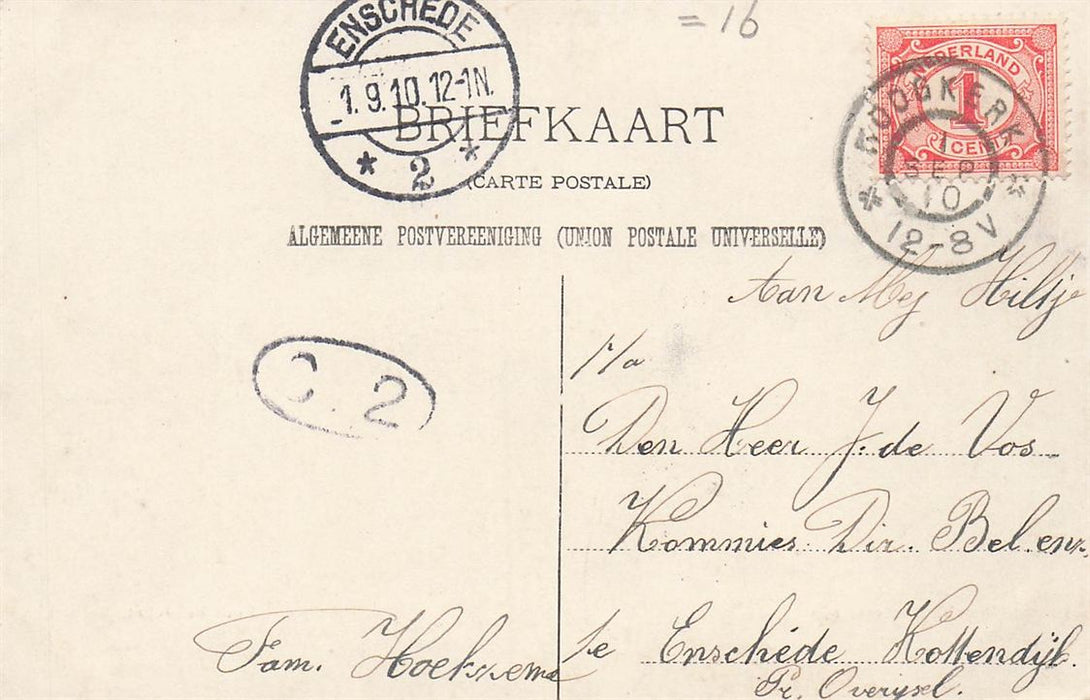 = 16
ENSCHEDE
1.9.10.12-1N.
* 2 *
NEDERLAND
1
1 CENT
HOOGKERK
1
SEP
10
* 12-8V *
BRIEFKAART
(CARTE POSTALE)
ALGEMEENE POSTVEREENIGING (UNION POSTALE UNIVERSELLE)
C 2
Aan Mej Hiltje
p/a
Den Heer J. de Vos
Kommies Dir. Bel. enz.
te Enschéde Kottendijk
Pr. Overysel
Fam. Hoeksema